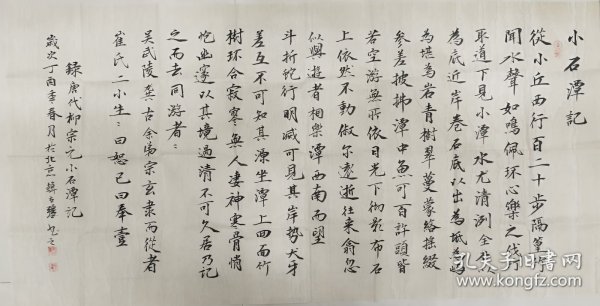 小石潭記
從小丘西行百二十步隔篁竹
聞水聲如鳴佩环心樂之伐竹
取道下見小潭水尤清洌全石
為底近岸卷石底以出為坻為嶼
為堪為岩青樹翠蔓蒙絡摇綴
参差披拂潭中魚可百許頭皆
若空游無所依日光下彻影布石
上依然不動俶尔遠逝往来翕忽
似與遊者相樂潭西南而望
斗折蛇行明滅可見其岸勢犬牙
差互不可知其源坐潭上四面竹
樹环合寂寥無人凄神寒骨悄
怆幽邃以其境過清不可久居乃記
之而去同游者：
吴武陵龔古余弟宗玄隶而從者
崔氏二小生：曰恕己曰奉壹
録唐代柳宗元小石潭記
歲次丁酉季春月於北京
孔夫子旧书网